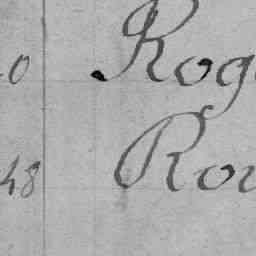 0 Rog
48 Rou